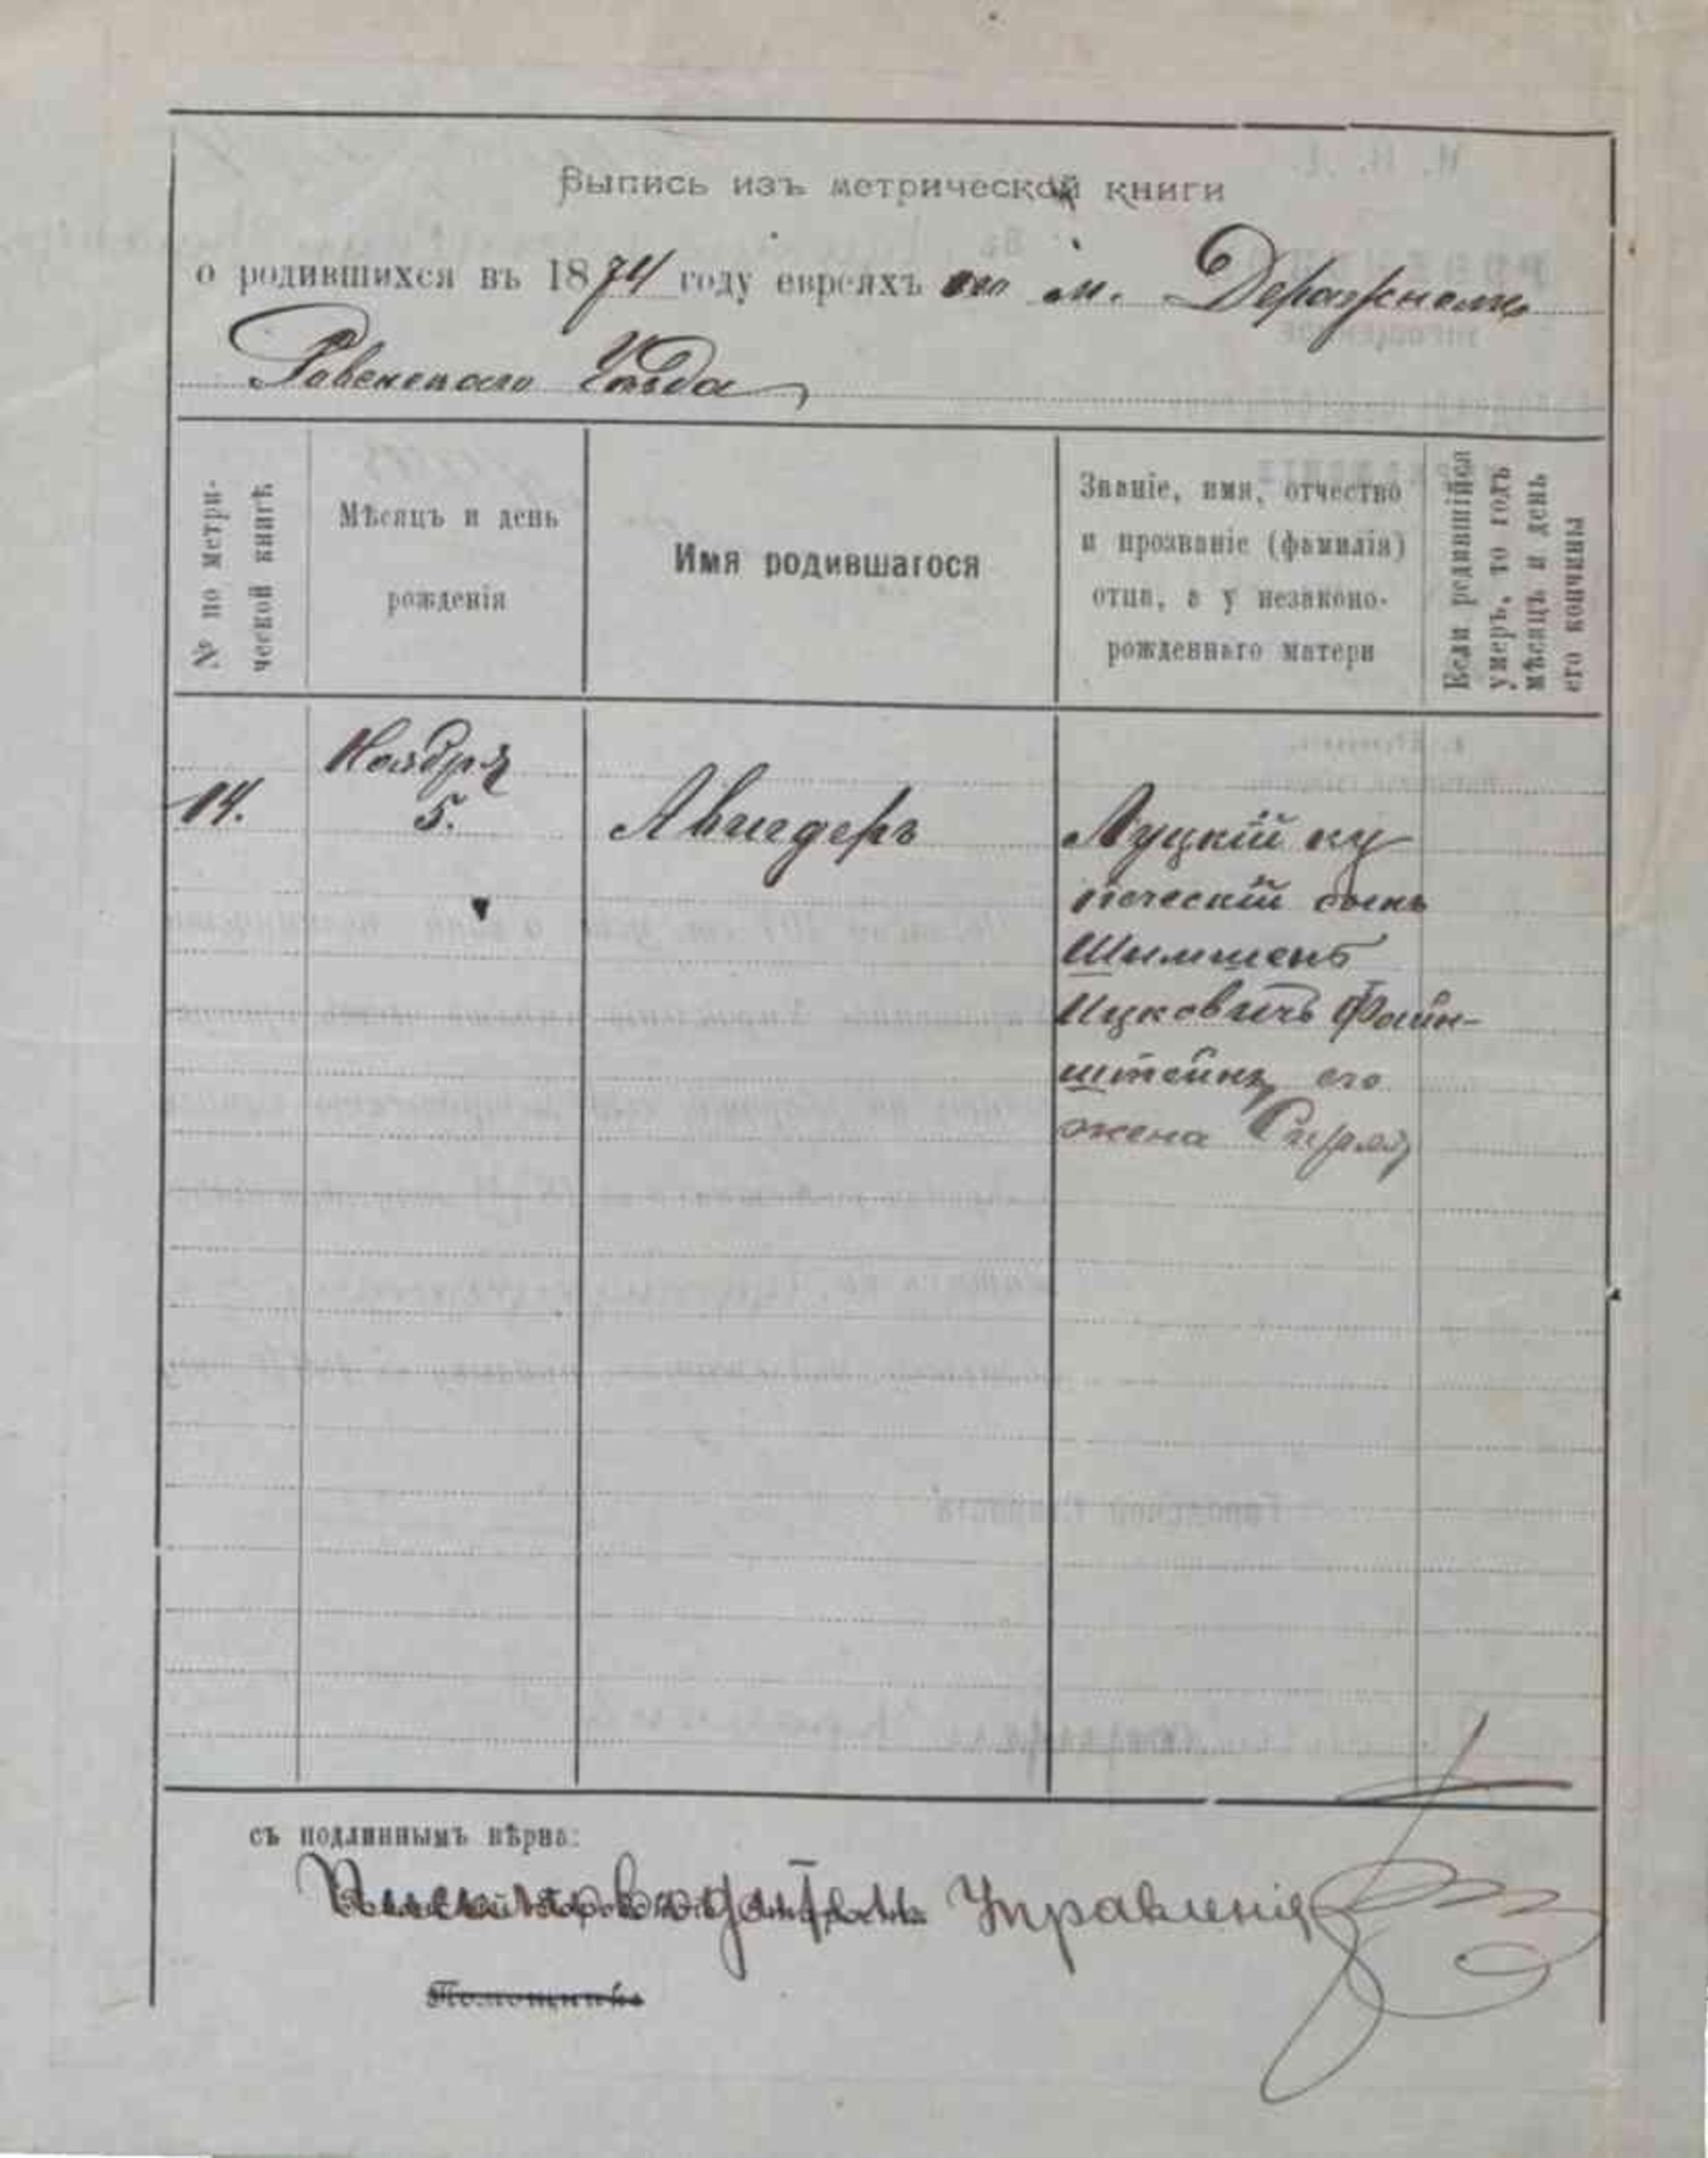 Выпись изъ метрической книги
о родившихся въ 1874 году евреяхъ по м. Деражномъ
Ровенскаго Уѣзда
№ по метри-
ческой книгѣ
Мѣсяцъ и день
рожденія
Имя родившагося
Званіе, имя, отчество
и прозваніе (фамилія)
отца, а у незаконо-
рожденнаго матери
Если родившійся
умеръ, то годъ
мѣсяцъ и день
его кончины
14.
Ноября
5.
Авигдеръ
Луцкій ку
печескій сынъ
Шимшенъ
Ицковичъ Файн-
штейнъ его
жена
съ подлиннымъ вѣрно:
Управленія
Помощникъ